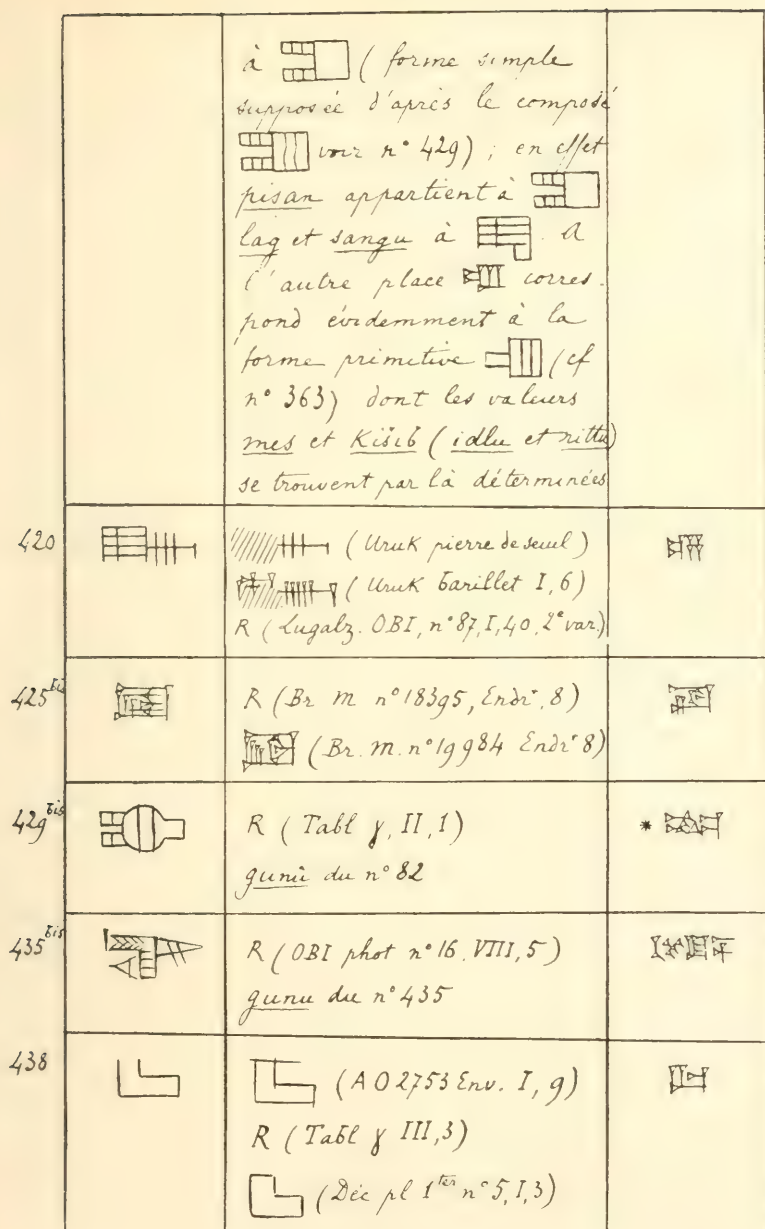 à (forme simple
supposée d'après le composé
voir n° 429); en effet
pisan appartient à
lag et sangu à . A
l'autre place corres-
pond évidemment à la
forme primitive (cf
n° 363) dont les valeurs
mes et Kišib (idlu et rittu)
se trouvent par là déterminées
420 (Uruk pierre de seuil)
(Uruk barillet I, 6)
R (Lugalz. OBI, n° 87, I, 40, 2e var.)
425 bis R (Br. M. n° 18395, Endr., 8)
(Br. M. n° 19984 Endr. 8)
429 bis R (Tabl γ, II, 1) *
gunû du n° 82
435 bis R (OBI phot n° 16. VIII, 5)
gunu du n° 435
438 (AO 2753 Env. I, 9)
R (Tabl γ III, 3)
(Déc pl 1 ter n° 5, I, 3)